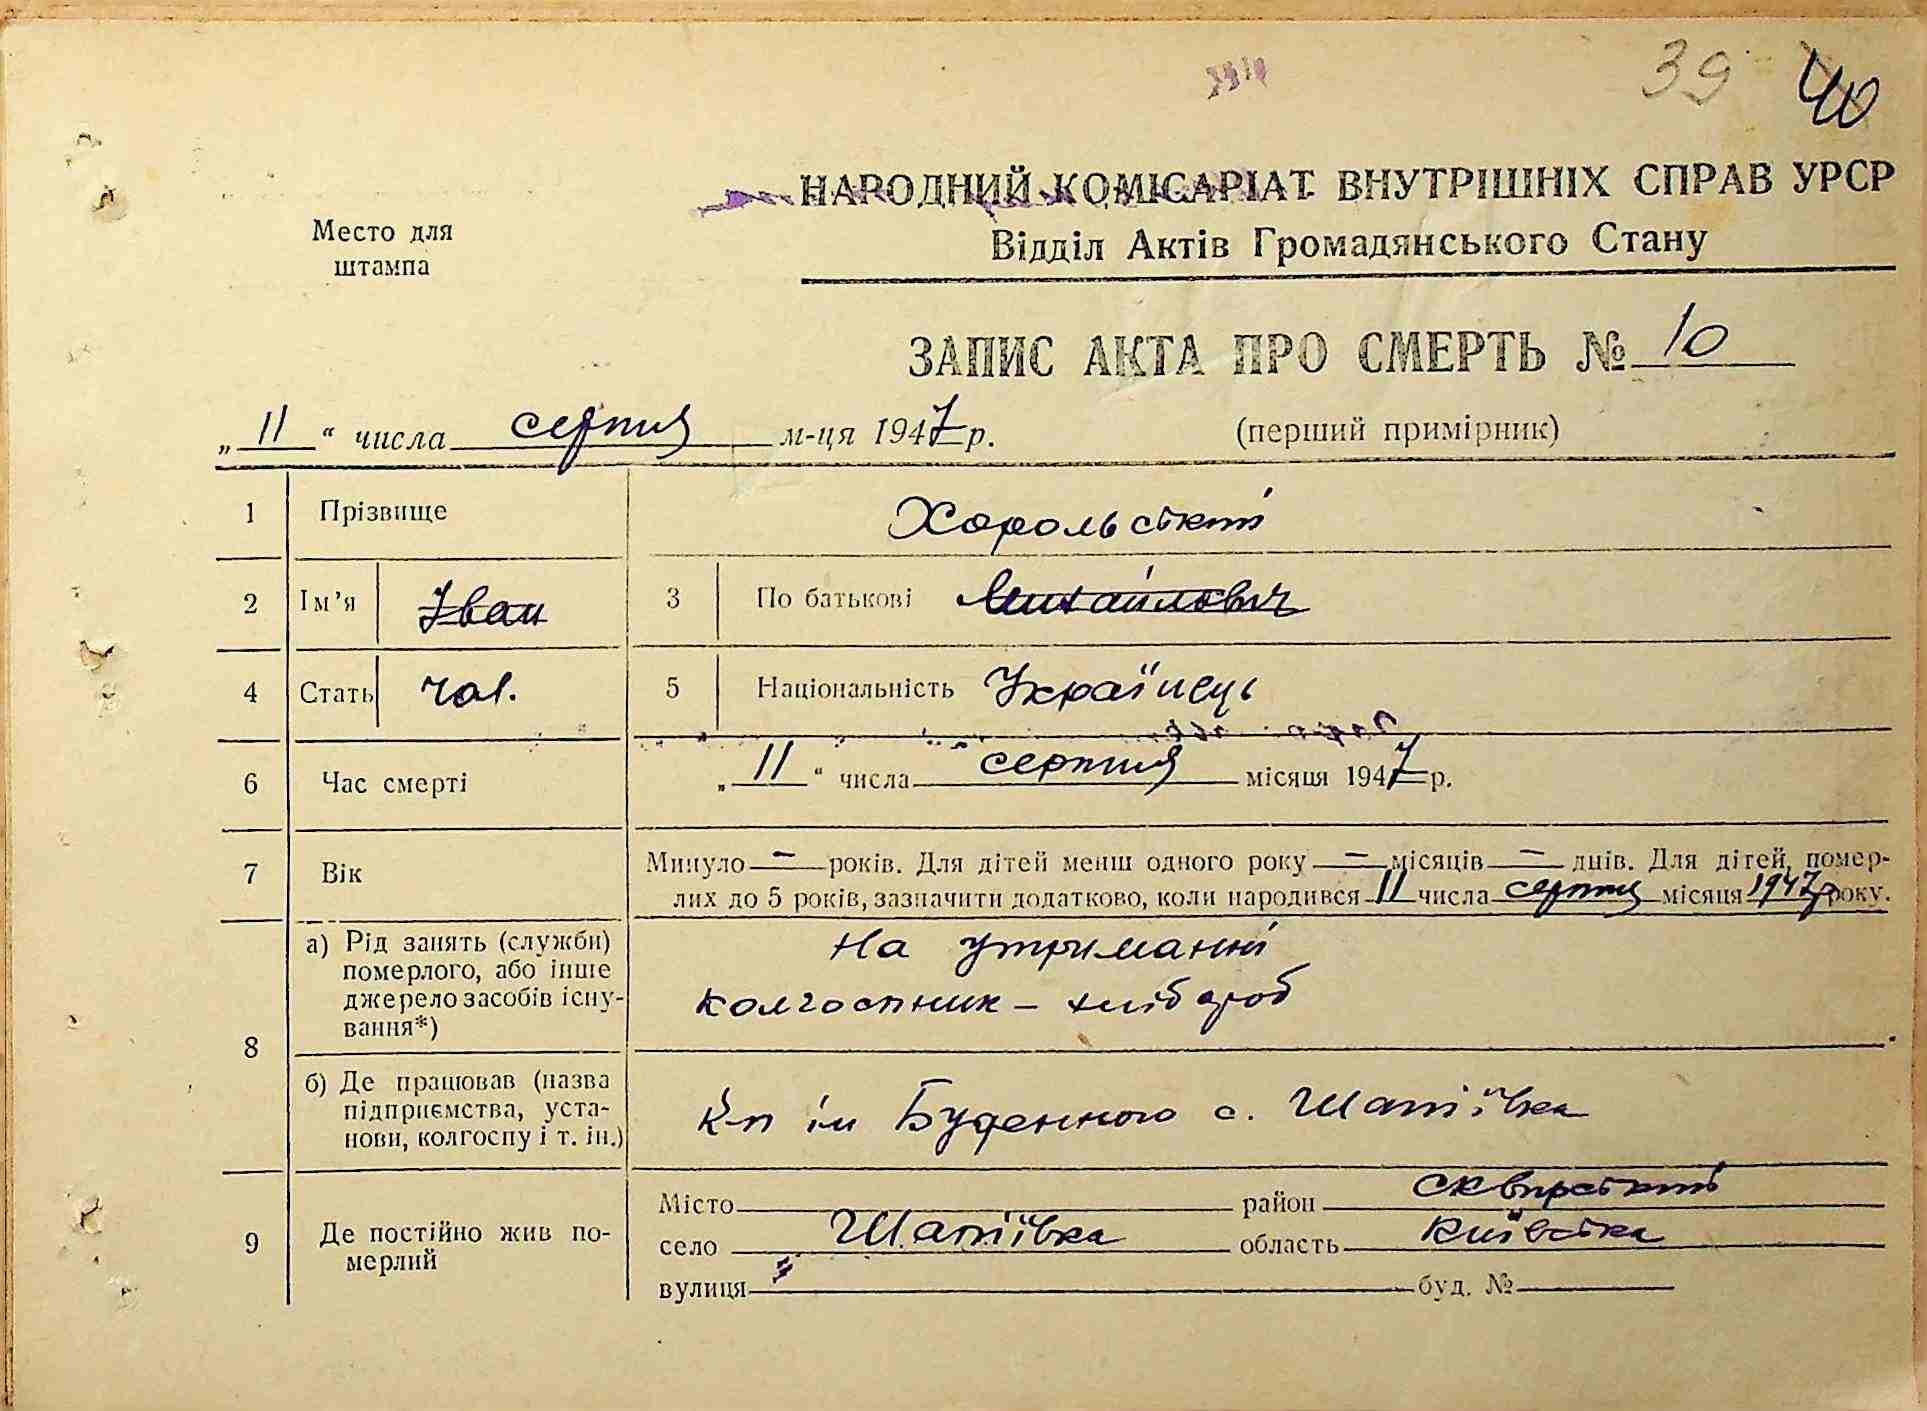 39 40
НАРОДНИЙ КОМІСАРІАТ ВНУТРІШНІХ СПРАВ УРСР
Відділ Актів Громадянського Стану
Место для
штампа
ЗАПИС АКТА ПРО СМЕРТЬ № 10
„ 11 “ числа серпня м-ця 1947 р. (перший примірник)
1 Прізвище Хорольський
2 Ім’я Іван 3 По батькові Михайлович
4 Стать чол. 5 Національність Українець
6 Час смерті „ 11 “ числа серпня місяця 1947 р.
7 Вік Минуло — років. Для дітей менш одного року — місяців — днів. Для дітей, помер-
лих до 5 років, зазначити додатково, коли народився 11 числа серпня місяця 1947 р року.
8 а) Рід занять (служби) померлого, або інше джерело засобів існу-вання*) На утриманні
колгоспник – хлібороб
б) Де працював (назва підприємства, уста-нови, колгоспу і т. ін.) К-п ім Буденного с. Шапіївка
9 Де постійно жив по-мерлий Місто район сквирський
село Шапіївка область Київська
вулиця буд. №